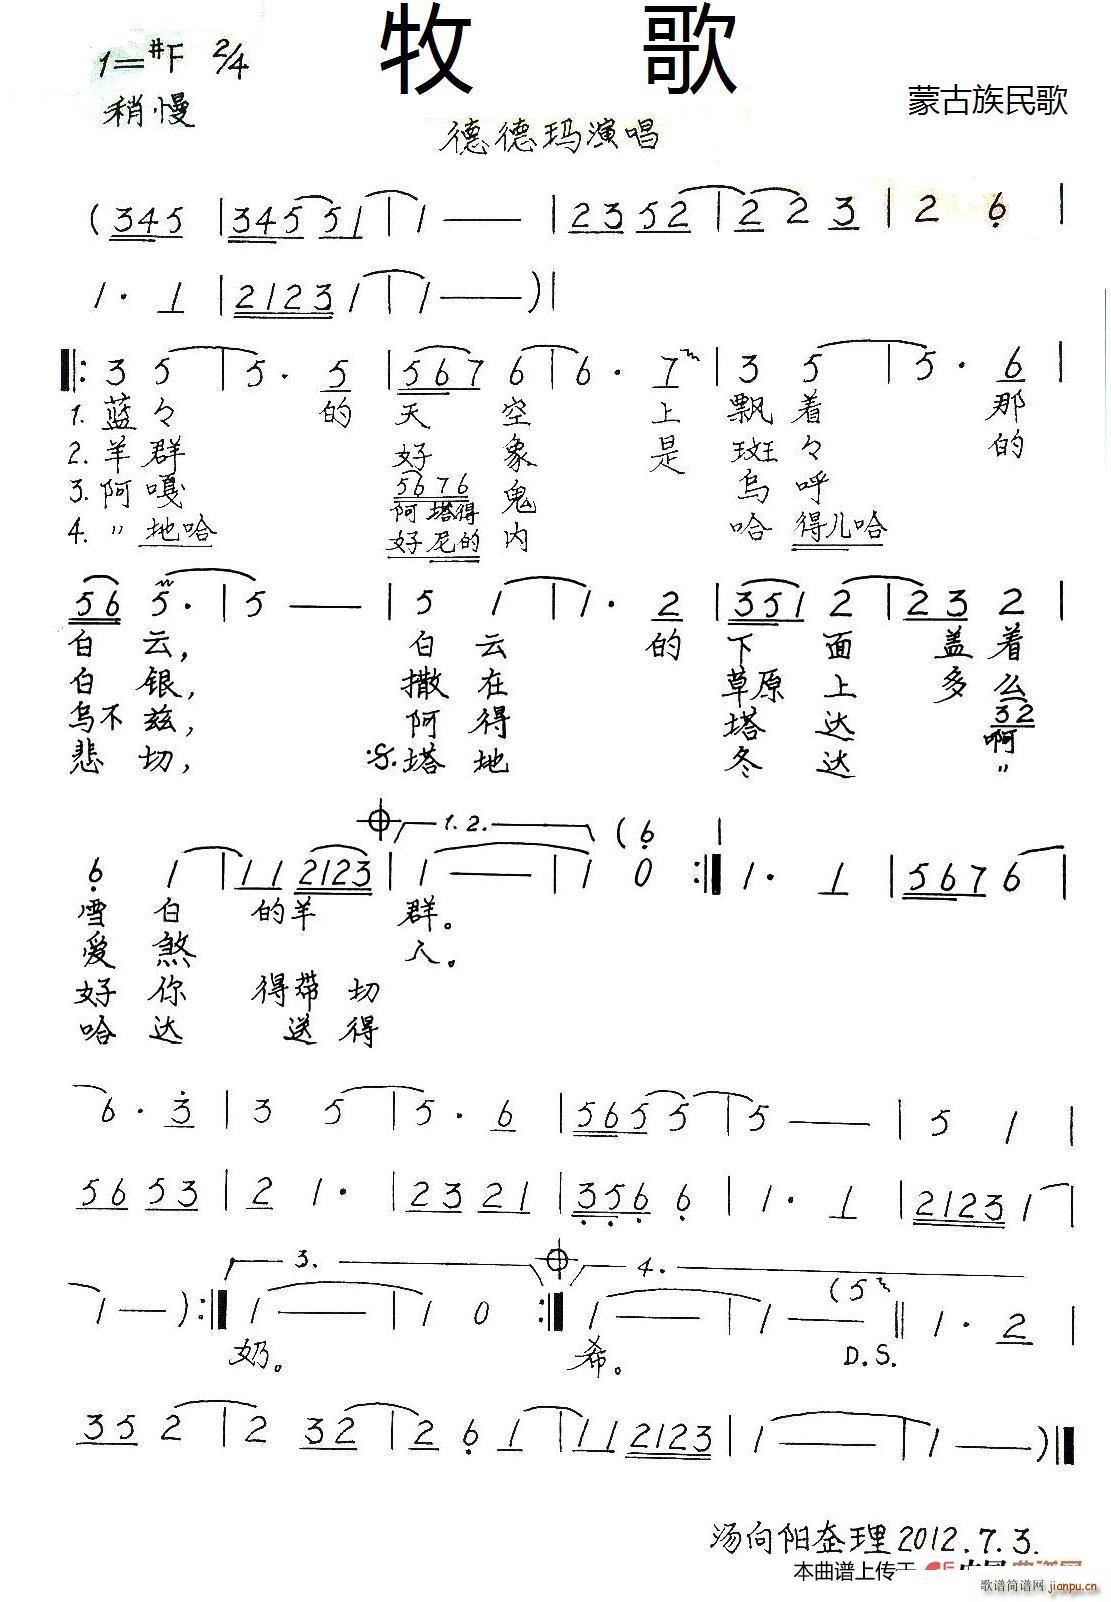 牧 歌
1=#F 2/4
稍慢
蒙古族民歌
德德玛演唱
(345 | 3455 51 | 1 — | 2352 | 2 2 3 | 2 6 |
1 · 1 | 2123 1 | 1 — ) |
‖: 3 5 | 5 · 5 | 567 6 | 6 · 7 | 3 5 | 5 · 6 |
1. 蓝々 的 天 空 上 飘 着 那
2. 羊群 好 象 是 斑 々 的
3. 阿嘎 5676 鬼 乌 呼
阿塔得
4. 〃 地哈 好尼的 内 哈 得儿哈
56 5 · | 5 — | 5 1 | 1 · 2 | 351 2 | 2 3 2 |
白 云, 白 云 的 下 面 盖 着
白 银, 撒 在 草原 上 多 么
乌不 兹, 阿 得 塔 达 32
啊
悲 切, 塔 地 冬 达 〃
1. 2. (6 |
6 1 | 11 2123 | 1 — | 1 0 :‖ 1 · 1 | 567 6 |
雪 白 的羊 群。
爱 煞 人。
好 你 得带 切
哈 达 送 得
6 · 3 | 3 5 | 5 · 6 | 565 5 | 5 — | 5 1 |
56 53 | 2 1 · | 23 21 | 356 6 | 1 · 1 | 2123 1 |
3. 4.
1 — ) :‖ 1 — | 1 0 :‖ 1 — | 1 — (5 ‖ 1 · 2 |
奶。 希。 D.S.
35 2 | 2 32 | 2 6 1 | 11 2123 | 1 — | 1 — ) ‖
汤向阳整理2012.7.3.
本曲谱上传于
歌谱简谱网
jianpu.cn